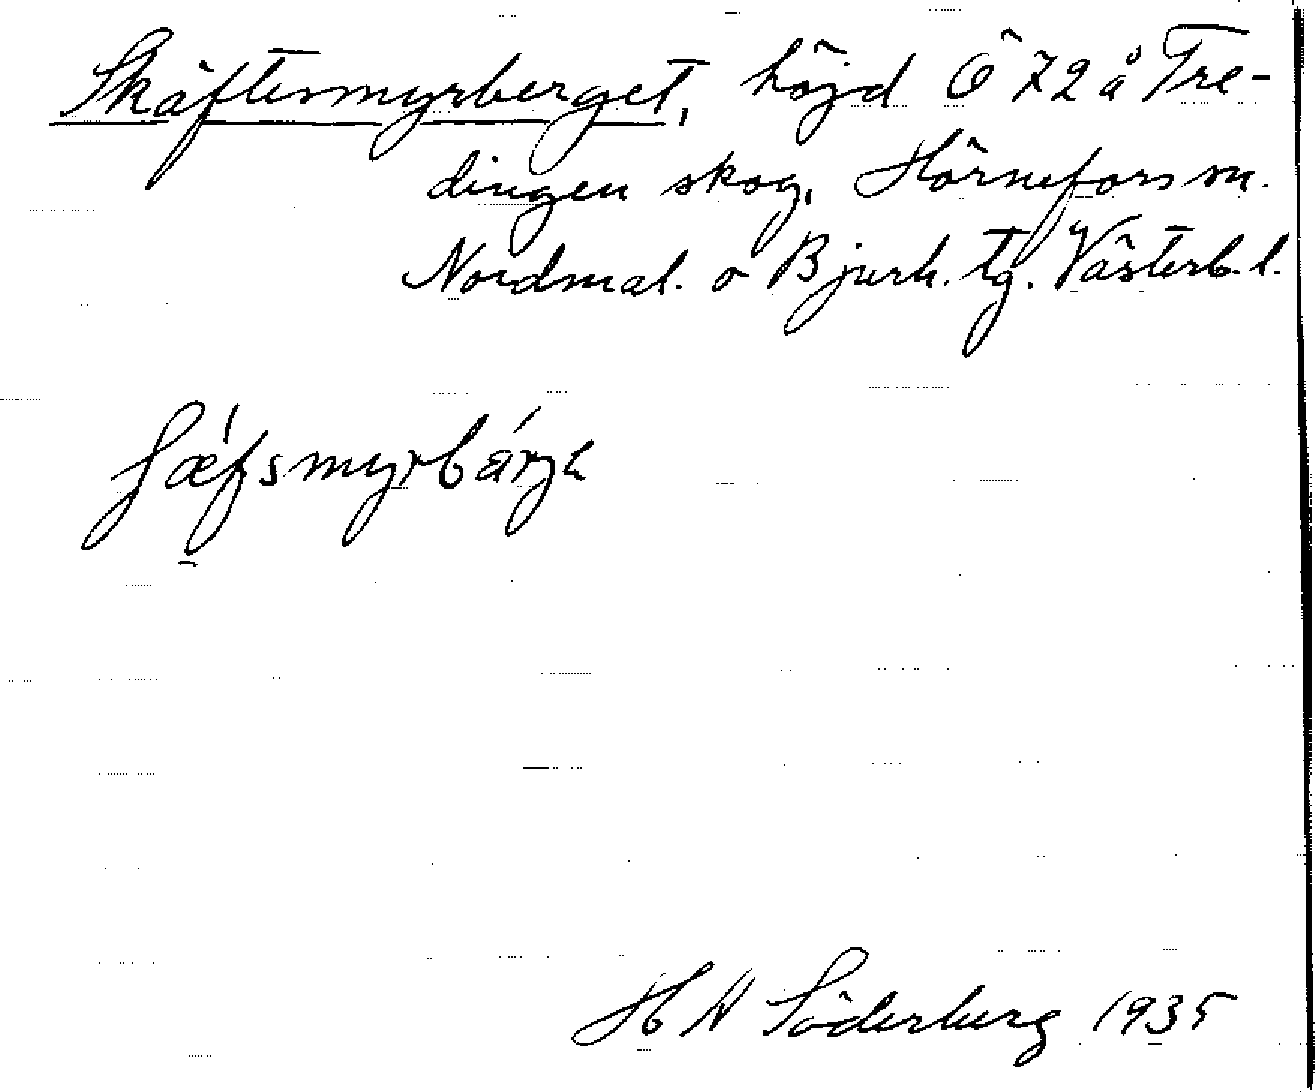 Skäftesmyrberget, höjd Ö 72 å Tre-
dingen skog, Hörnefors sn.
Nordmal. o Bjurh. tg. Västerb. l.
H N Söderberg 1935